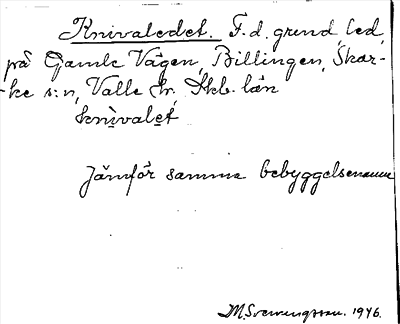 Knivaledet. F.d. grind, led,
på Gamle Vägen, Billingen, Skar-
-ke s:n, Valle hr. Skb. län
knìvalet
Jämför samma bebyggelsenamn
M. Svenungsson. 1946.